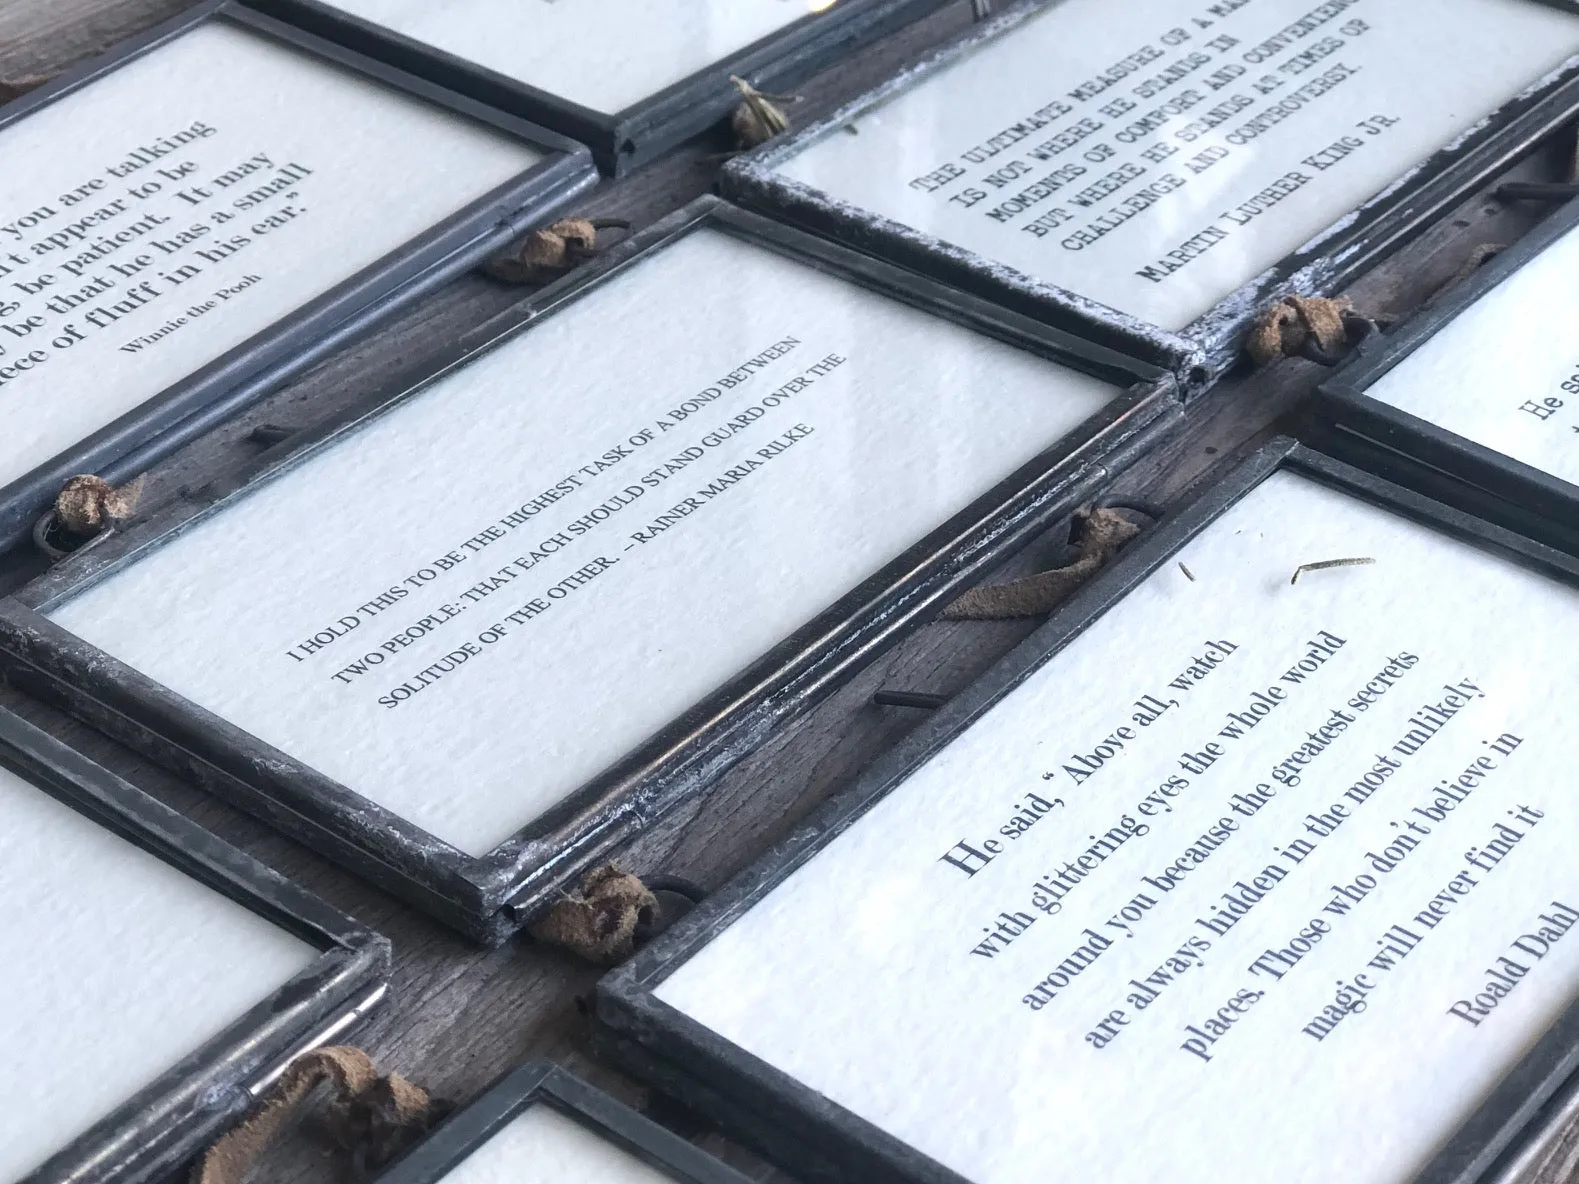 you are talking
appear to be
be patient. It may
be that he has a small
of fluff in his ear.”
Winnie the Pooh
THE ULTIMATE MEASURE OF A
IS NOT WHERE HE STANDS IN
MOMENTS OF COMFORT AND CONVENIENC
BUT WHERE HE STANDS AT TIMES OF
CHALLENGE AND CONTROVERSY.
MARTIN LUTHER KING JR.
I HOLD THIS TO BE THE HIGHEST TASK OF A BOND BETWEEN
TWO PEOPLE: THAT EACH SHOULD STAND GUARD OVER THE
SOLITUDE OF THE OTHER. – RAINER MARIA RILKE
He
He said,“ Above all, watch
with glittering eyes the whole world
around you because the greatest secrets
are always hidden in the most unlikely
places. Those who don't believe in
magic will never find it
Roald Dahl